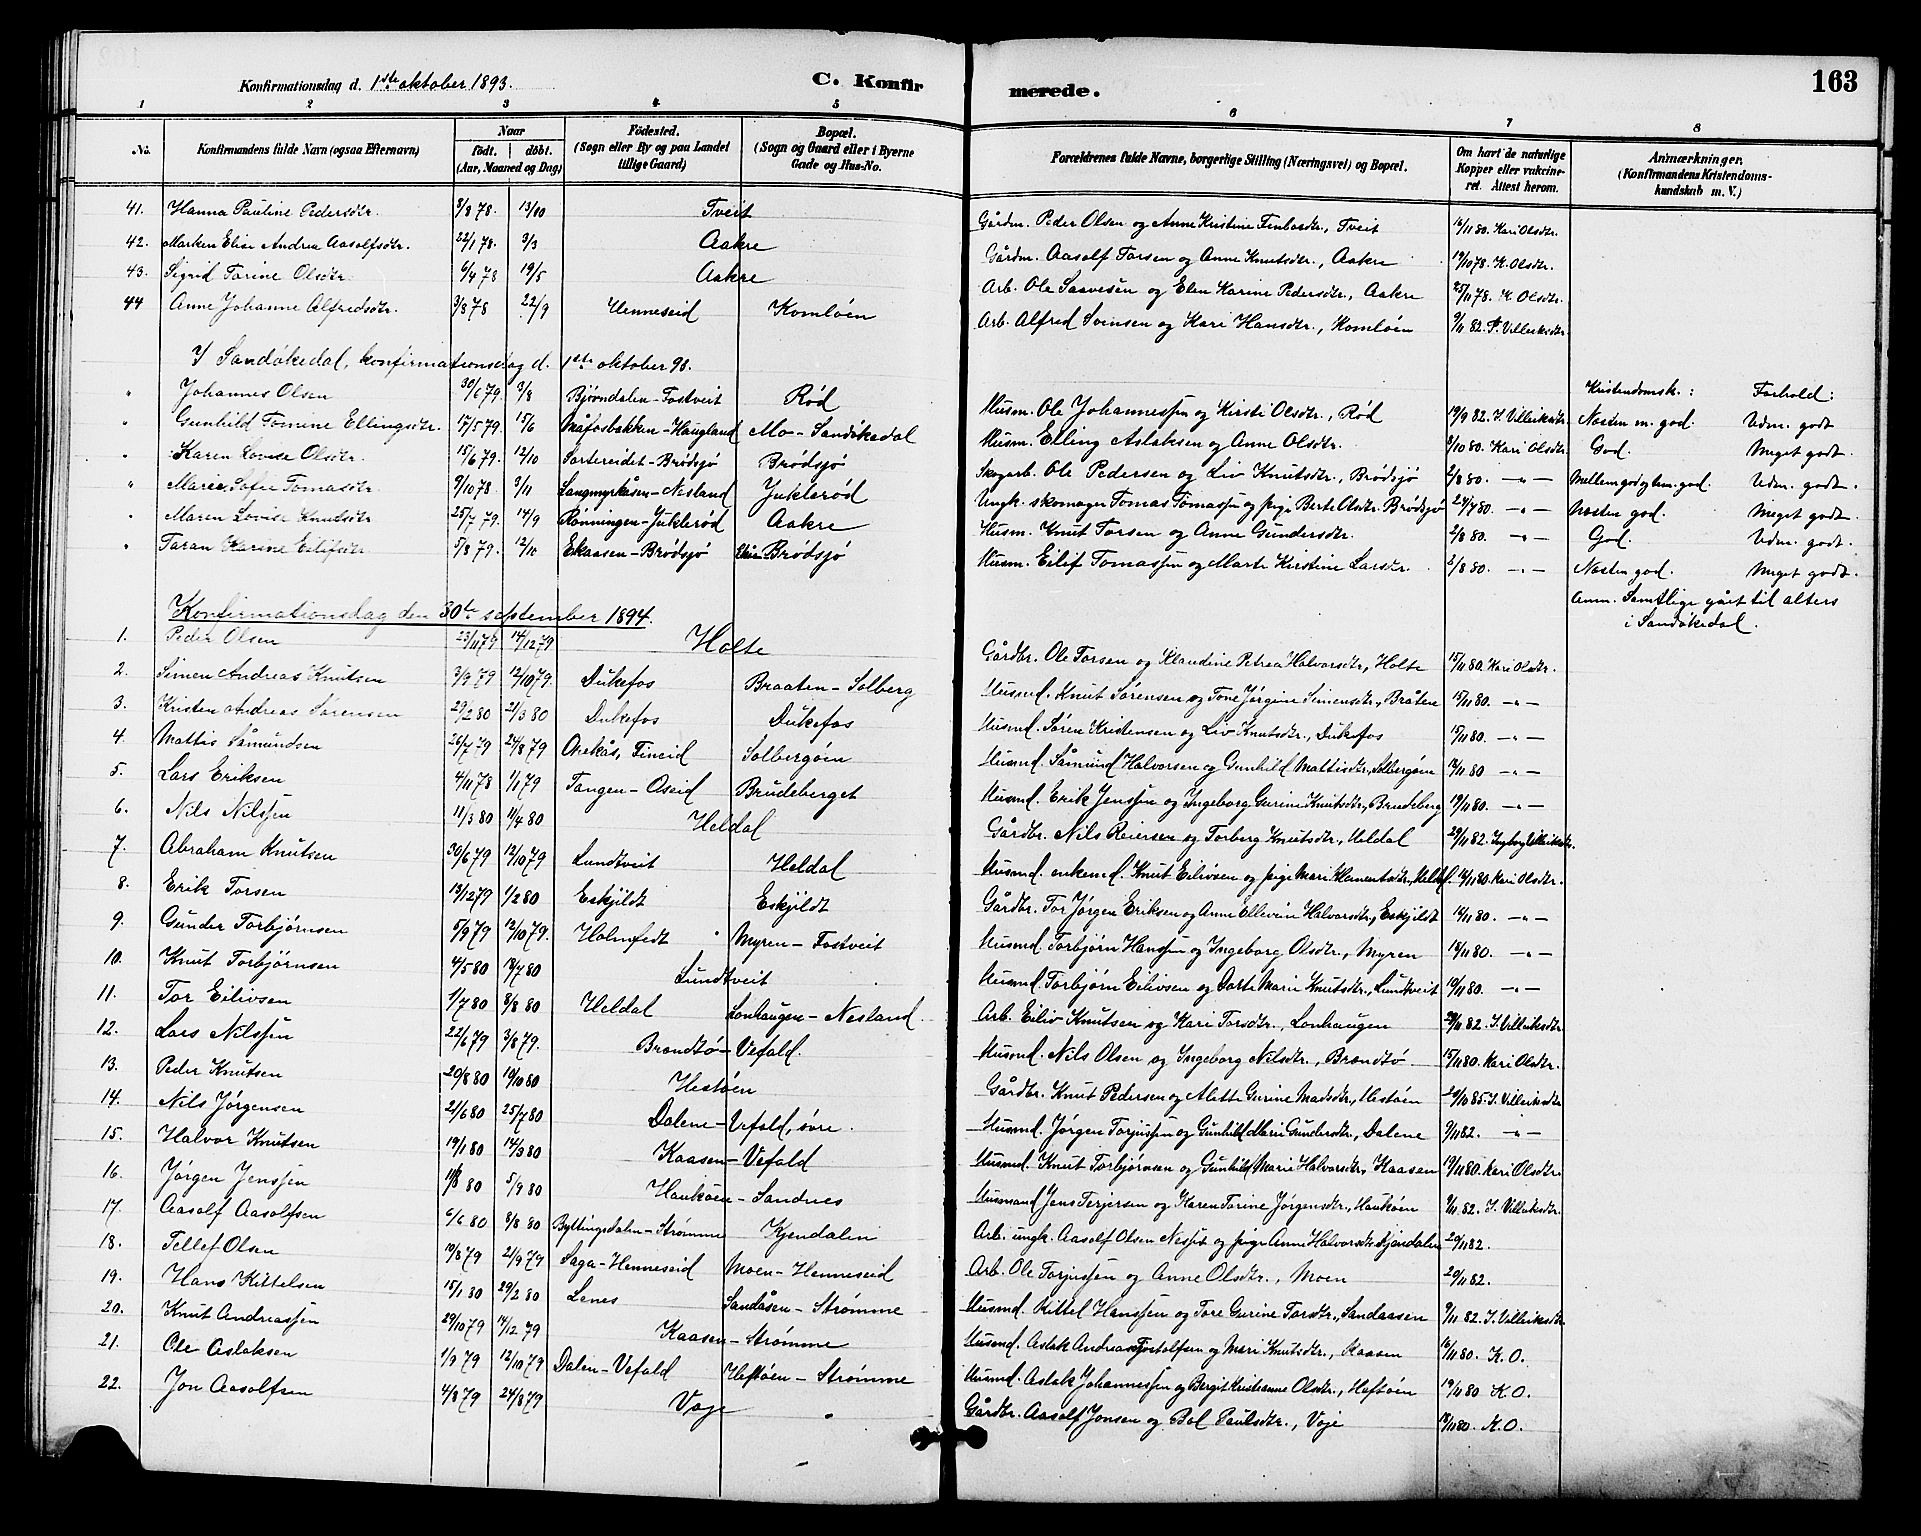 163
Konfirmationsdag d. 1ste oktober 1893. C. Konfirmerede.
1 2 3 4 5 6 7 8
No. Konfirmandens fulde Navn (ogsaa Efternavn) Naar födt. döbt. (Aar, Maaned og Dag) Födested. (Sogn eller By og paa Landet tillige Gaard) Bopæl. (Sogn og Gaard eller i Byerne Gade og Hus-No. Forældrenes fulde Navne, borgerlige Stilling (Næringsvei) og Bopæl. Om havt de naturlige Kopper eller vakcineret. Attest herom. Anmærkninger. (Konfirmandens Kristendomskundskab m. V.)
41. Hanna Pauline Pedersdtr. 8/8 78. 13/10 Tveit Gårdm. Peder Olsen og Anne Kristine Finbosdtr., Tveit 16/11 80. Kari Olsdtr.
42. Marken Elise Andrea Aasolfsdtr. 22/1 78. 3/3 Aakre Gårdm. Aasolf Torsen og Anne Knutsdtr., Aakre 19/10 78. K. Olsdtr.
43. Sigrid Torine Olsdtr. 6/4 78 19/5 Aakre Arb. Ole Saavesen og Elen Karine Pedersdtr., Aakre 25/11 78. K. Olsdtr.
44 Anne Johanne Alfredsdtr. 3/8 78 22/9 Henneseid Komløen Arb. Alfred Svensen og Kari Hansdtr., Komløen 9/11 82. I. Villeiksdtr.
I Sandøkedal, konfirmationsdag d. 1ste oktober 93.
Kristendomsk.: Forhold:
" Johannes Olsen 30/6 79. 3/8 Bjørndalen-Tostveit Rød Husm. Ole Johannessen og Kirsti Olsdtr., Rød 19/9 82. I. Villeiksdtr. Næsten m. god. Udm. godt
" Gunhild Tomine Ellingsdtr. 17/5 79. 15/6 Måfosbakken-Haugland Mo-Sandøkedal Husm. Elling Aslaksen og Anne Olsdtr. 8/10 80. Kari Olsdtr. God. Meget godt.
" Karen Lovise Olsdtr. 15/6 79. 12/10 Sortereidet-Brødsjø Brødsjø Skogarb. Ole Pedersen og Liv Knutsdtr., Brødsjø 2/8 80. -"- Mellem god og tem. god. Udm. godt.
" Maren Sofie Tomasdtr. 9/10 78. 3/11 Langmyråsen-Nesland Jyklerød Ungk. skomager Tomas Tomassen og pige Berte Olsdtr. Brødsjø 24/7 80. -"- Næsten god. Meget godt.
" Maren Lovise Knutsdtr 25/7 79. 14/9 Rønningen-Jyklerød Aakre Husm. Knut Torsen og Anne Gundersdtr. 2/8 80. -"- God. Udm. godt.
" Taran Karine Eilifsdtr. 5/8 79. 12/10 Ekaasen-Brødsjø Brødsjø Husm. Eilif Tomassen og Marte Kirstine Larsdtr. 2/8 80. -"- Næsten god. Meget godt.
Anm. Samtlige gået til alters
i Sandøkedal.
Konfirmationsdag den 30te september 1894.
1. Peder Olsen 23/11 79 14/12 79 Holte Gårdbr. Ole Torsen og Klaudine Petrea Halvorsdtr., Holte 15/11 80. Kari Olsdtr.
2. Simen Andreas Knutsen 3/9 79 12/10 79. Dukefos Braaten-Solberg Husmd. Knut Sørensen og Tone Jørgine Simensdtr., Bråten 15/11 80. -"-
3. Kristen Andreas Sørensen 29/2 80 21/3 80 Dukefos Dukefos Husmd. Søren Kristensen og Liv Knutsdtr., Dukefos 15/11 80. -"-
4. Mattis Såmundsen 26/7 79 24/8 79 Orekås, Fineid Solbergøen Husmd. Såmund Halvorsen og Gunhild Mattisdtr., Solbergøen 12/11 80 -"-
5. Lars Eriksen 4/11 78 1/1 79 Tangen-Oseid Brudeberget Husmd. Erik Jenssen og Ingeborg Gurine Knutsdtr., Brudeberg 19/11 80. -"-
6. Nils Nilssen 11/3 80 11/4 80 Heldal Gårdbr. Nils Reiersen og Torberg Knutsdtr., Heldal 29/11 82. Ingborg Villeiksdtr.
7. Abraham Knutsen 30/6 79 12/10 79 Lundtveit Heldal Husmd. enkemd. Knut Eilivsen og pige Mari Klementsdtr., Heldal. 16/11 80. Kari Olsdtr.
8. Erik Torsen 13/12 79 1/2 80 Eskjildt Eskjildt Gårdbr. Tor Jørgen Eriksen og Anne Ellevine Halvorsdtr., Eskjildt 16/11 80. -"-
9. Gunder Torbjørnsen 5/9 79 12/10 79. Holmfedt Myren-Tostveit Husmd. Torbjørn Hanssen og Ingeborg Olsdtr., Myren 18/11 80. -"-
10. Knut Torbjørnsen 4/5 80 18/7 80 Lundtveit Husmd. Torbjørn Eilivsen og Dorte Marie Knutsdtr., Lundtveit 19/11 80. -"-
11. Tor Eilivsen 1/7 80 8/8 80 Heldal Lonhaugen-Nesland. Arb. Eiliv Knutsen og Kari Torsdtr., Lonhaugen 29/11 82. I. Villeiksdtr.
12. Lars Nilssen 22/6 79 3/8 79. Brændtø-Vefald. Husmd. Nils Olsen og Ingeborg Nilsdtr., Brændtø 15/11 80. Kari Olsdtr.
13. Peder Knutsen 20/8 80 10/10 80 Hestøen Gårdbr. Knut Pedersen og Alette Gurine Madsdtr., Hestøen 20/10 85. I. Villeiksdtr
14. Nils Jørgensen 21/6 80 25/7 80 Dalene-Vefald, søre. Husmd. Jørgen Torjussen og Gunhild Marie Gundersdtr., Dalene 9/11 82. -"-
15. Halvor Knutsen 19/1 80 14/3 80 Kaasen-Vefald Husmd. Knut Torbjørnsen og Gunhild Marie Halvorsdtr., Kaasen 19/11 80. Kari Olsdtr.
16. Jørgen Jenssen 11/8 80 5/9 80 Haukøen-Sandnes Husmand Jens Terjersen og Karen Torine Jørgensdtr., Haukøen 9/11 82. I. Villeiksdtr.
17. Aasolf Aasolfsen 6/6 80 8/8 80 Byttingsdalen-Strømme Kjendalen Arb. ungk. Aasolf Olsen og pige Anne Halvorsdtr. Kjendalen 20/11 82.
18. Tellef Olsen 10/8 79 21/9 79 Saga-Henneseid Moen-Henneseid Arb. Ole Torjussen og Anne Olsdtr., Moen 20/11 82.
19. Hans Kittelsen 15/1 80 29/2 80 Lenes Sandåsen-Strømme Husmd. Kittel Hanssen og Tore Gurine Torsdtr., Sandaasen 9/11 82. I. Villeiksdtr
20. Knut Andreassen 29/10 79 14/12 79 Kaasen-Strømme Husmd. Aslak Andreas Tostolfsen og Mari Knutsdtr., Kaasen 16/11 80. K.O.
21. Ole Aslaksen 1/9 79 12/10 79 Dalen-Vefald Heftøen-Strømme Husmd. Aslak Johannessen og Bergit Kristianne Olsdtr., Heftøen 19/11 80 K.O.
22. Jon Aasolfsen 4/8 79 24/8 79 Voje " Gårdbr. Aasolf Jonsen og Bol Paulsdtr., Voje 18/11 80. K.O.